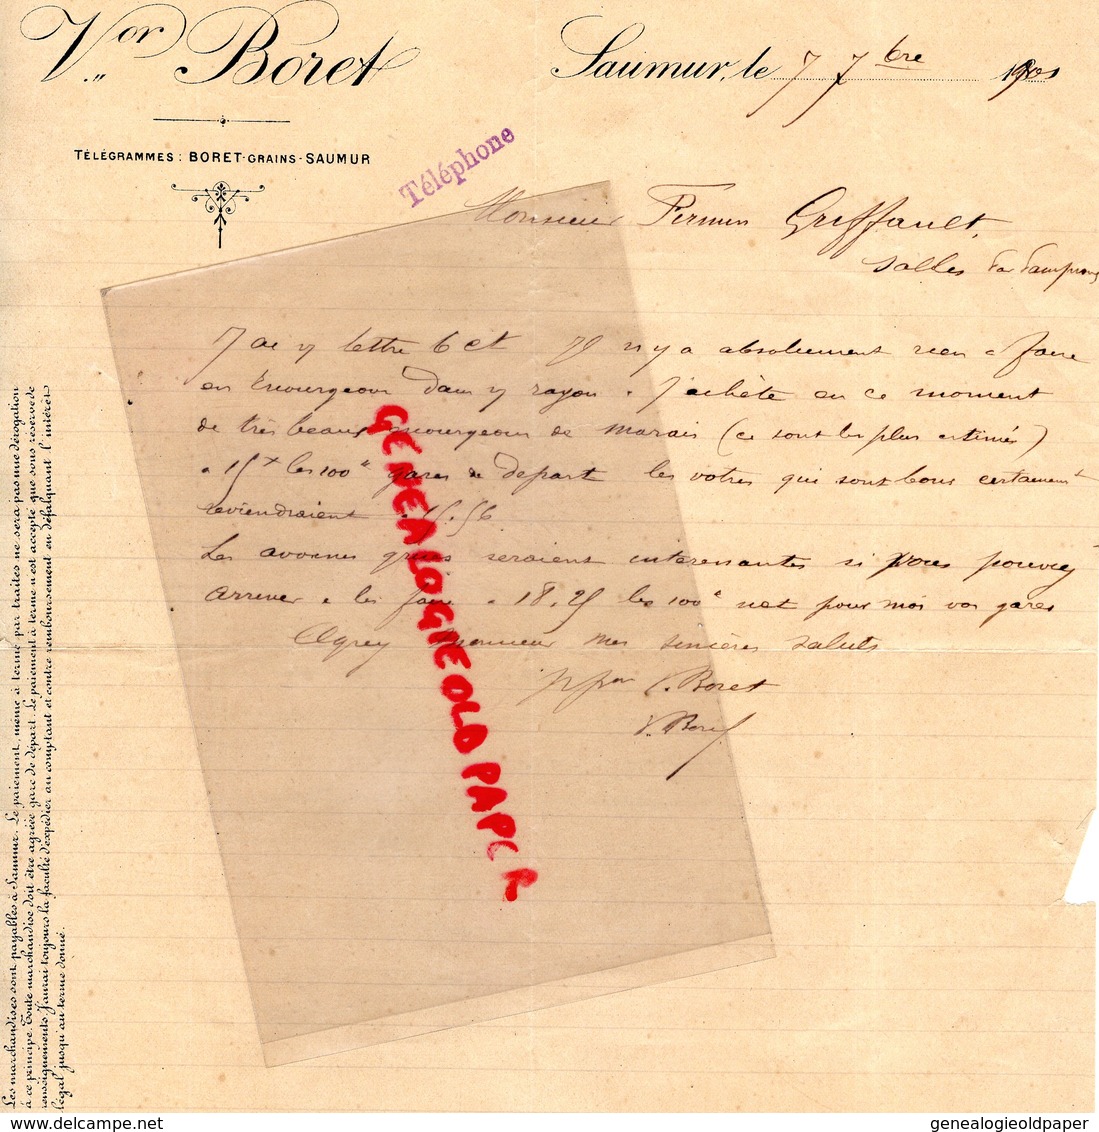 Vor Boret
Saumur, le 7 7bre 1901
TÉLÉGRAMMES: BORET-GRAINS-SAUMUR
Téléphone
Monsieur Firmin Griffault,
Salles par Pamproux
J'ai v/ lettre 6 ct Il n'y a absolument rien a faire
en Escourgeon dans v/ rayon. J'achète en ce moment
de très beaux escourgeons de marais (ce sont les plus estimés)
a 15 les 100 gares de départ les votres qui sont bons certainement
reviendraient a 15.50
Les avoines grises seraient interessantes si vous pouviez
arriver a les faire a 18.25 les 100 net pour moi vos gares
Agreez Monsieur mes sincères saluts
ppon V. Boret
V. Boret
Les marchandises sont payables à Saumur. Le paiement, même à terme par traites ne sera pas une dérogation
à ce principe. Toute marchandise doit être agréée gare de départ. Le paiement à terme n'est accepté que sous réserve de
renseignements. J'aurai toujours la faculté d'expédier au comptant et contre remboursement en défalquant l'intérêt
légal jusqu'au terme donné.
GENEALOGIE OLD PAPER
genealogieoldpaper